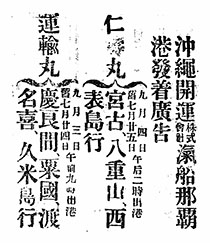 沖繩開運株式會社汽船那覇
港發着廣告
仁壽丸
九月四日午后二時出港
舊七月廿五日
宮古、八重山、西
表島行
運輸丸
九月三日午前九時出港
舊七月廿四日
慶良間粟國、渡
名喜、久米島行